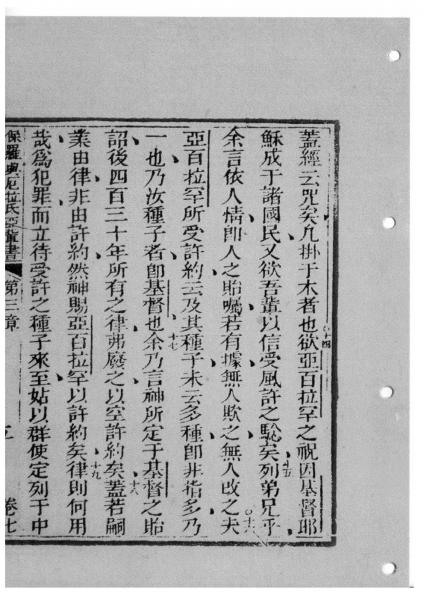 蓋經云咒矣凡掛于木者也欲亞百拉罕之祝因基督耶
十四
穌成于諸國民又欲吾輩以信受風許之驗矣列弟兄乎
十五
余言依人情卽人之貽囑若有據無人欺之無人改之夫
十六
亞百拉罕所受許約云及其種子未云多種卽非指多乃
一也乃汝種子者卽基督也余乃言神所定于基督之貽
十七
詔後四百三十年所有之律弗廢之以空許約矣蓋若嗣
十八
業由律非由許約然神賜亞百拉罕以許約矣律則何用
十九
哉為犯罪而立待受許之種子來至姑以群使定列于中
保羅與厄拉氏亞輩書 第三章 卷七